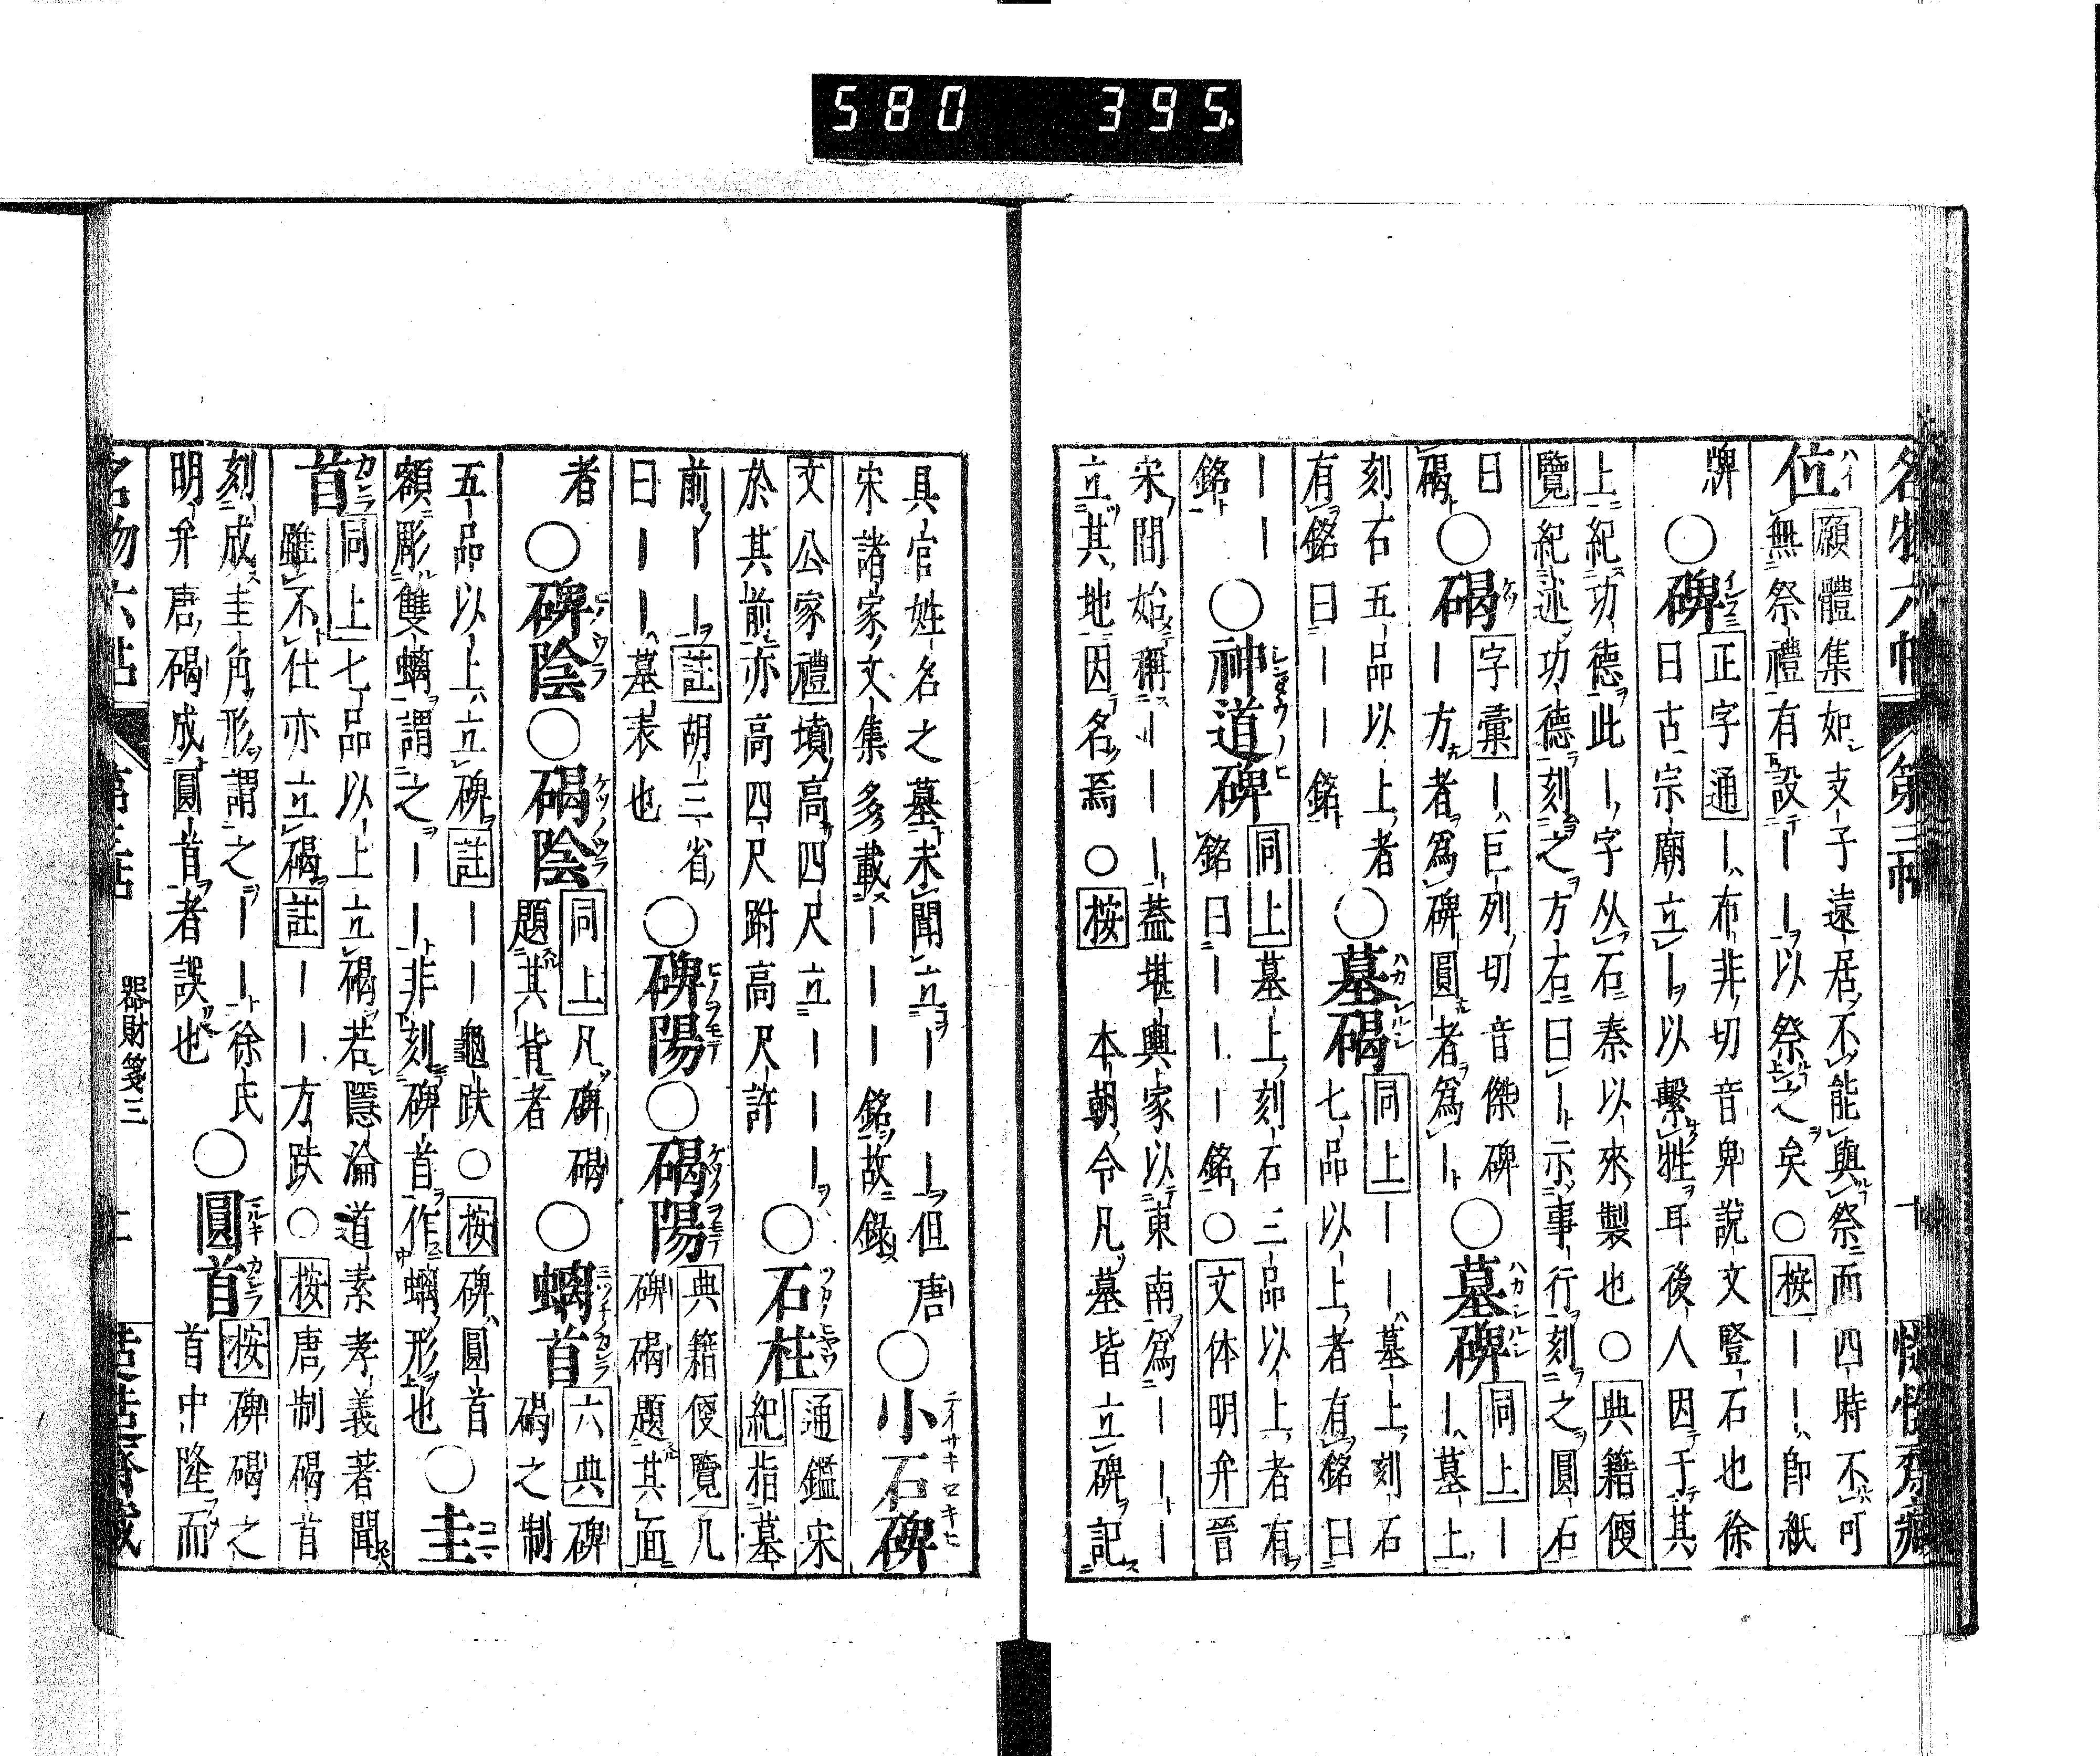 580 395.
位ハイ
願體集如支子遠居不能與祭而四時不可
無祭禮有設――以祭之矣○按――即紙
牌
○碑
正字通―布非切音卑説文豎石也徐
曰古宗廟立―以繫牲耳後人因于其
上紀功德此―字从石秦以來製也○典籍便
覽紀述功德刻之方石曰―示事行刻之圓石
曰碣
○碣
字彙―巨列切音傑碑
―方者爲碑圓者爲―
○墓碑
同上―
―墓上
刻石五品以上者
有銘曰――銘
○墓碣
同上――墓上刻石
七品以上者有銘曰
――
銘
○神道碑
同上墓上刻石三品以上者有
銘曰―――銘○文体明弁晉
宋間始稱―――蓋堪輿家以東南爲――
立其地因名焉○按本朝令凡墓皆立碑記
具官姓名之墓未聞立―――但唐
宋諸家文集多載―――銘故錄
○小石碑
文公家禮墳高四尺立―――
於其前亦高四尺趺高尺許
○石柱
通鑑宋
紀指墓
前――註胡三省
曰――墓表也
○碑陽○碣陽
典籍便覽凡
碑碣題其面
者
○碑陰○碣陰
同上凡碑碣
題其背者
○螭首
六典碑
碣之制
五品以上立碑註――龜趺○按碑圓首
額彫雙螭謂之――非刻碑首作螭形也
○圭首
同上七品以上立碣若隱淪道素孝義著聞
雖不仕亦立碣註――方趺○按唐制碣首
刻成圭角形謂之――徐氏
明弁唐碣成圓首者誤也
○圓首
按碑碣之
首中隆而
器財箋三